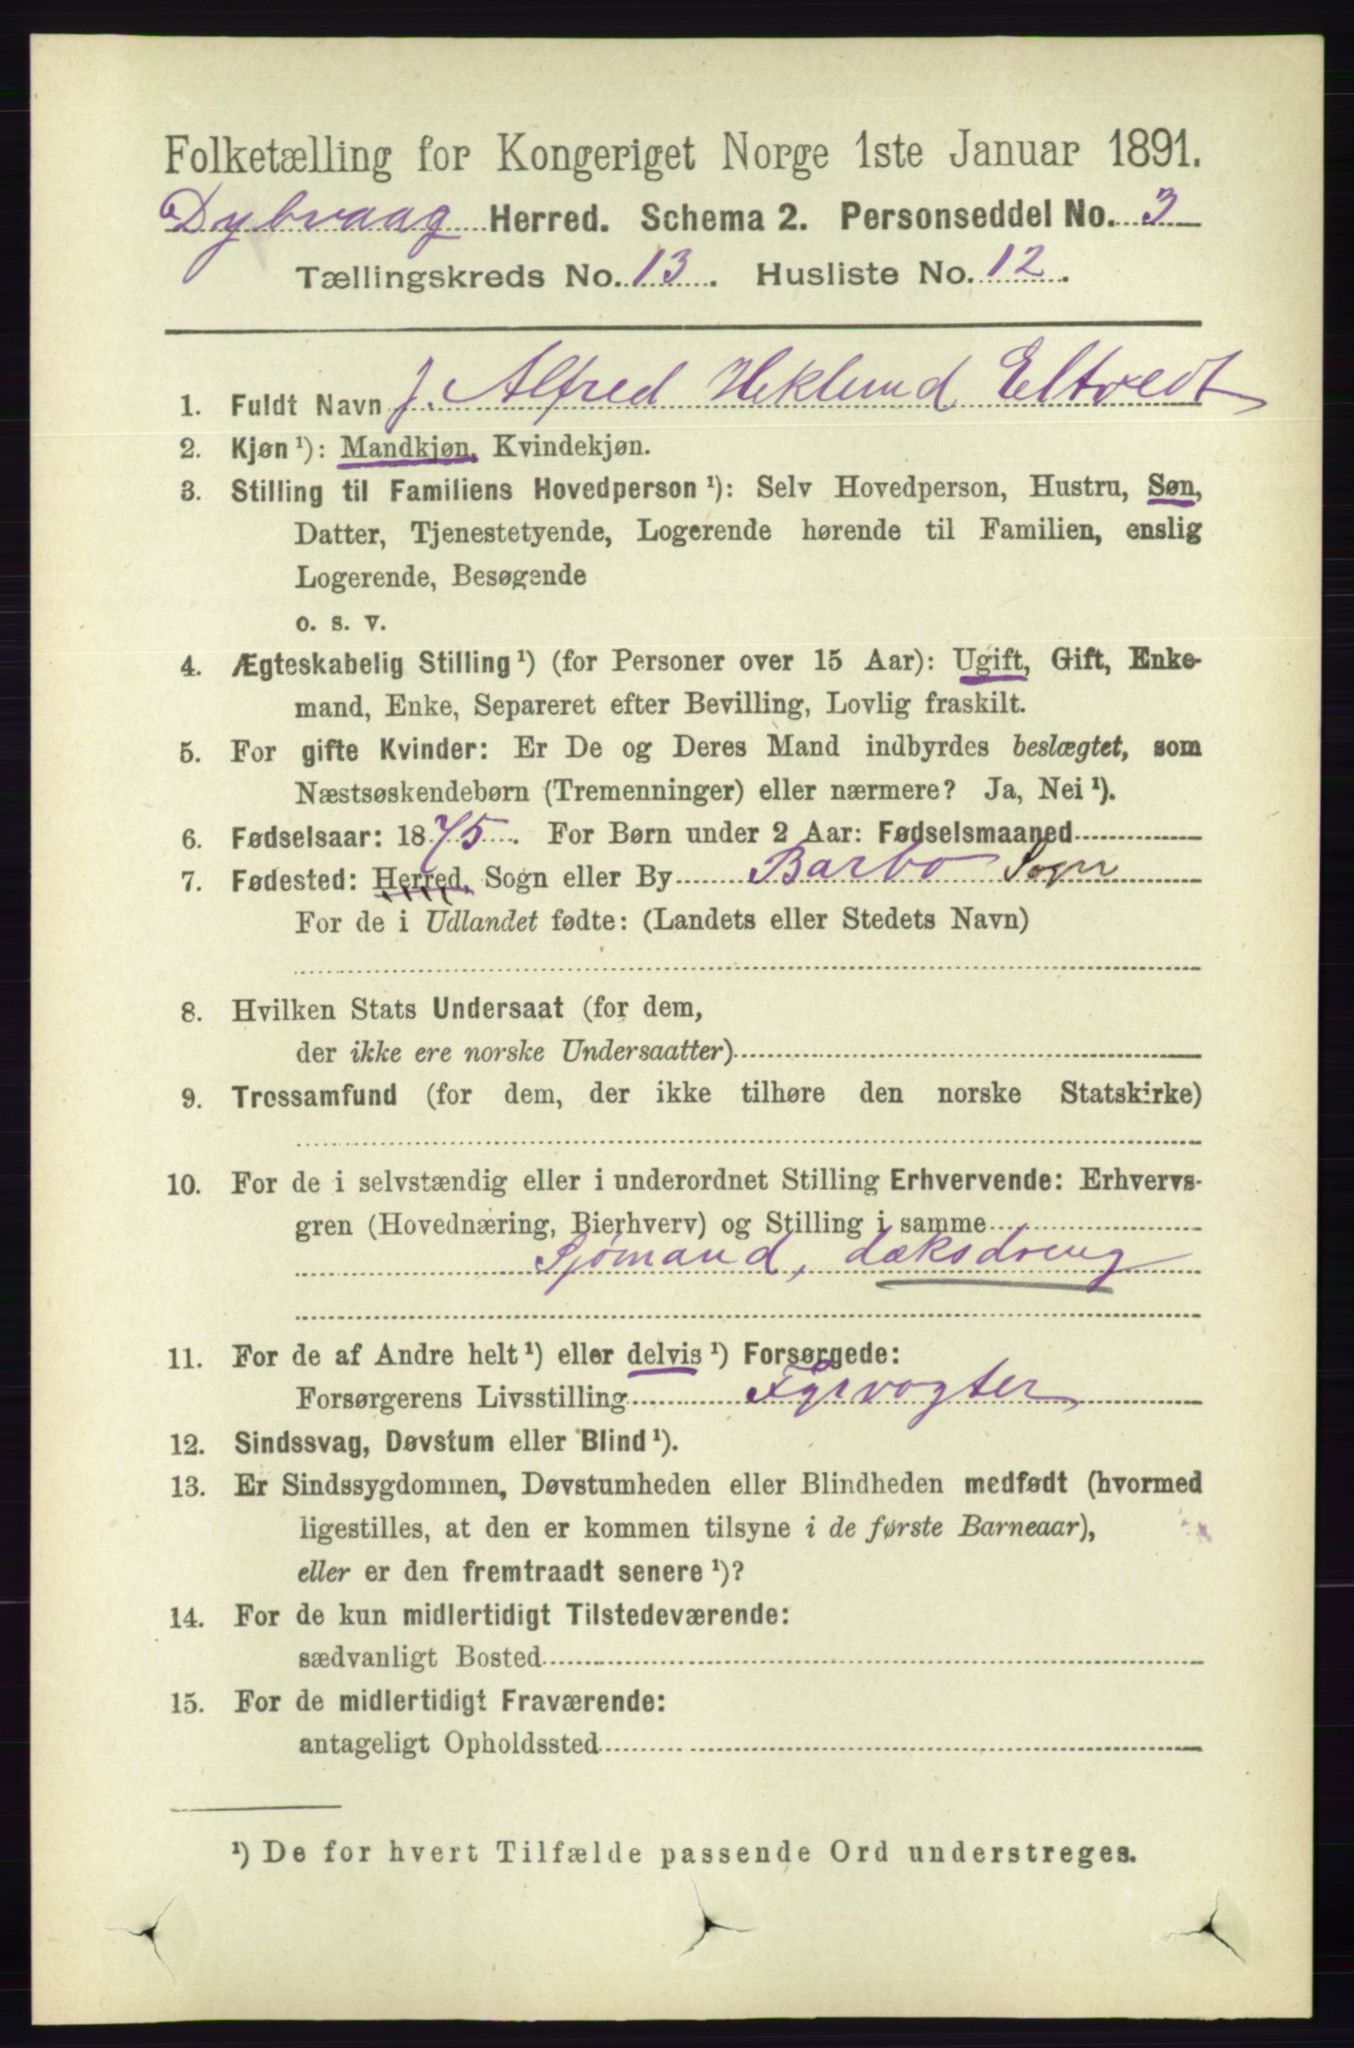 Folketælling for Kongeriget Norge 1ste Januar 1891.
Dybvaag Herred. Schema 2. Personseddel No. 3
Tællingskreds No. 13. Husliste No. 12.
1. Fuldt Navn J. Alfred Heklund Eltvedt
2. Kjøn ¹): Mandkjøn, Kvindekjøn.
3. Stilling til Familiens Hovedperson ¹): Selv Hovedperson, Hustru, Søn,
Datter, Tjenestetyende, Logerende hørende til Familien, enslig
Logerende, Besøgende
o. s. v.
4. Ægteskabelig Stilling ¹) (for Personer over 15 Aar): Ugift, Gift, Enke-
mand, Enke, Separeret efter Bevilling, Lovlig fraskilt.
5. For gifte Kvinder: Er De og Deres Mand indbyrdes beslægtet, som
Næstsøskendebørn (Tremenninger) eller nærmere? Ja, Nei ¹).
6. Fødselsaar: 1875. For Børn under 2 Aar: Fødselsmaaned
7. Fødested: Herred, Sogn eller By Barbo Sogn
For de i Udlandet fødte: (Landets eller Stedets Navn)
8. Hvilken Stats Undersaat (for dem,
der ikke ere norske Undersaatter)
9. Trossamfund (for dem, der ikke tilhøre den norske Statskirke)
10. For de i selvstændig eller i underordnet Stilling Erhvervende: Erhvervs-
gren (Hovednæring, Bierhverv) og Stilling i samme
Sjømand, dæksdreng
11. For de af Andre helt ¹) eller delvis ¹) Forsørgede:
Forsørgerens Livsstilling Fyrvogter
12. Sindssvag, Døvstum eller Blind ¹).
13. Er Sindssygdommen, Døvstumheden eller Blindheden medfødt (hvormed
ligestilles, at den er kommen tilsyne i de første Barneaar),
eller er den fremtraadt senere ¹)?
14. For de kun midlertidigt Tilstedeværende:
sædvanligt Bosted
15. For de midlertidigt Fraværende:
antageligt Opholdssted
¹) De for hvert Tilfælde passende Ord understreges.